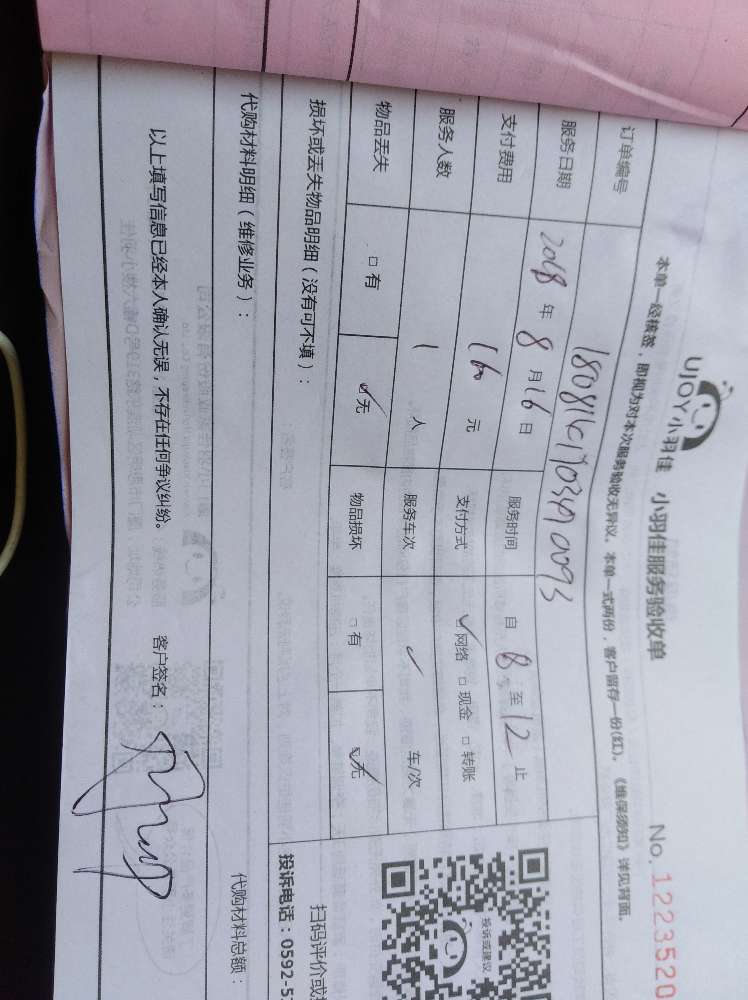 UJOY小羽佳 小羽佳服务验收单 No.1223520
本单一经核签，即视为对本次服务验收无异议。本单一式两份，客户留存一份(红)。《维保须知》详见背面。
订单编号
服务日期 2018年8月16日 服务时间 自8至12止
支付费用 160元 支付方式 ☑网络 □现金 □转账
服务人数 1人 服务车次 ✓ 车/次
物品丢失 □有 ☑无 物品损坏 □有 ☑无
损坏或丢失物品明细（没有可不填）：
投诉或建议
扫码评价或
投诉电话：0592-5
代购材料明细（维修业务）： 代购材料总额：
以上填写信息已经本人确认无误，不存在任何争议纠纷。 客户签名：